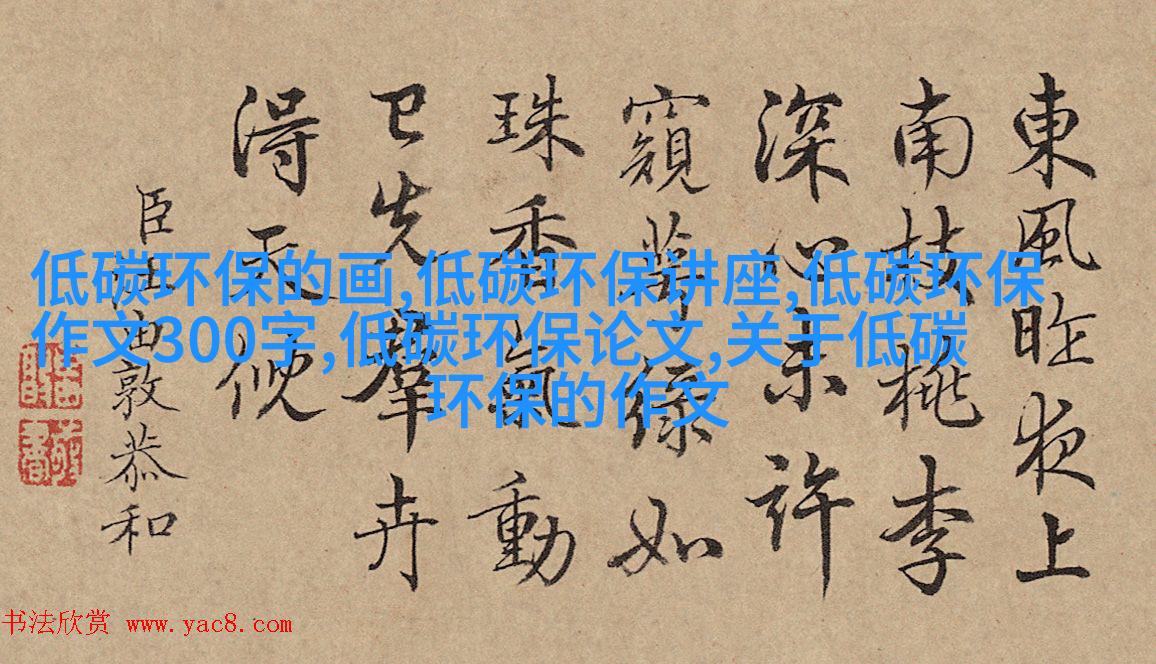 東風昨夜上
南枝桃李
深心未許
窺萼綠如
珠香氣動
已先羣卉
得天
臣汪由敦恭和
低碳环保的画,低碳环保讲座,低碳环保
作文300字,低碳环保论文,关于低碳
环保的作文
书法欣赏 www.yac8.com